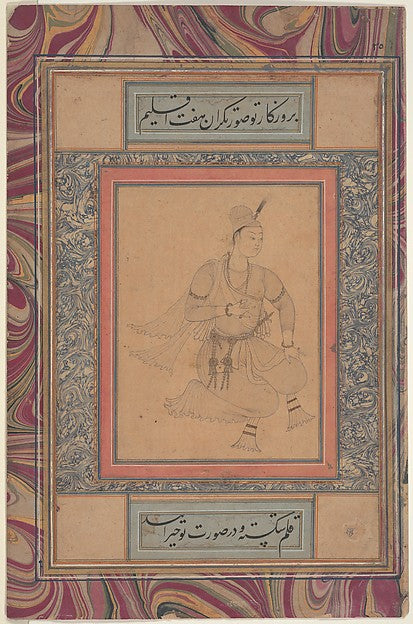 ٢٥
بروزگار تو صورتگران هفت اقلیم
قلم شکسته و در صورت تو حیرانند